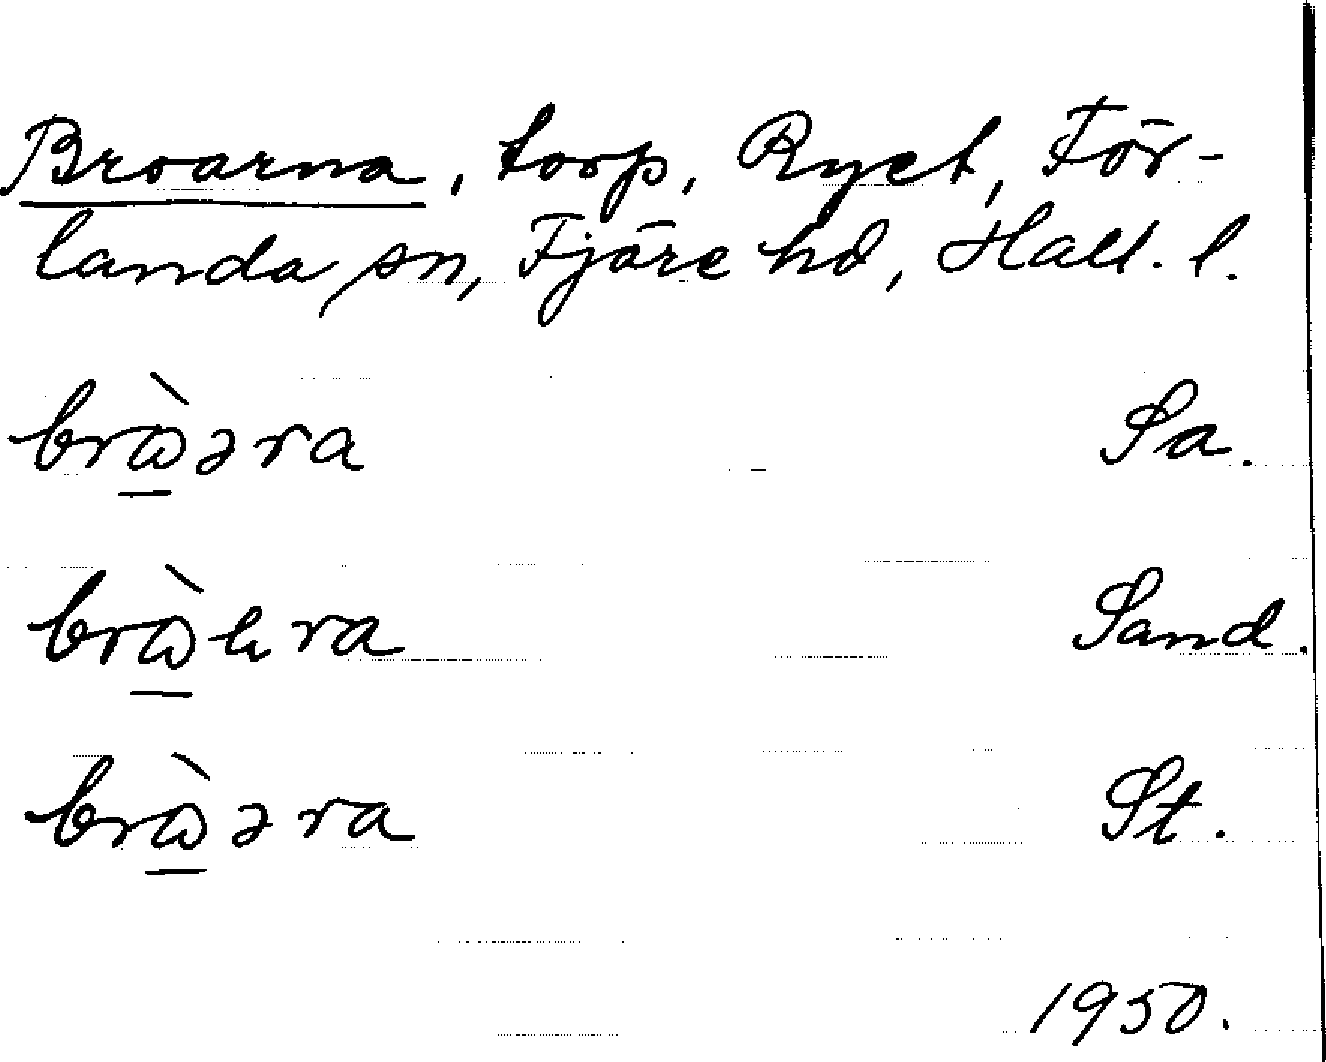 Broarna, torp, Ryet, För-
landa sn, Fjäre hd, Hall. l.
brὼəra Sa.
brὼhra Sand.
brὼəra St.
1950.